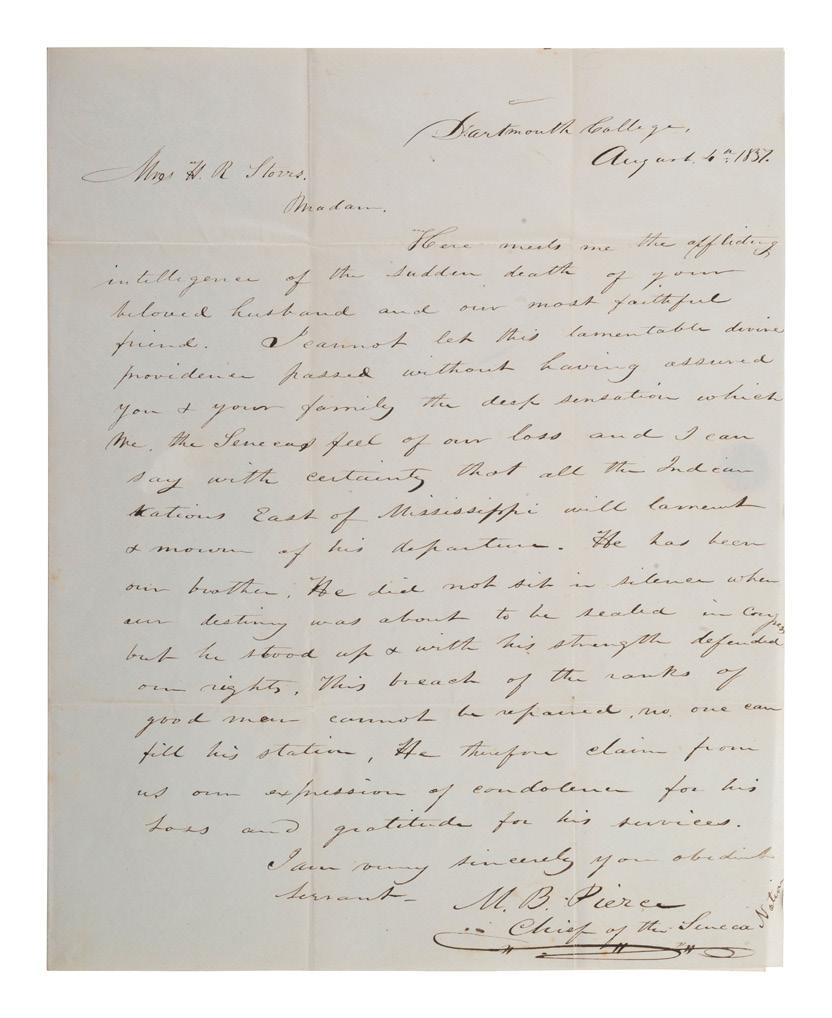 Dartmouth College,
August 4th 1837.
Mrs H. R Storrs.
Madam.
Here meets me the afflicting
intelligence of the sudden death of your
beloved husband and our most faithful
friend. I cannot let this lamentable divine
providence passed without having assured
you & your family the deep sensation which
We, the Senecas feel of our loss and I can
say with certainty that all the Indian
Nations East of Mississippi will lament
& mourn of his departure. He has been
our brother. He did not sit in silence when
our destiny was about to be sealed in Congress
but he stood up & with his strength defended
our rights. This breach of the ranks of
good men cannot be repaired, no one can
fill his station, He therefore claim from
us our expression of condolence for his
loss and gratitude for his services.
I am very sincerely your obedient
Servant-
M. B. Pierce
Chief of the Seneca Nation